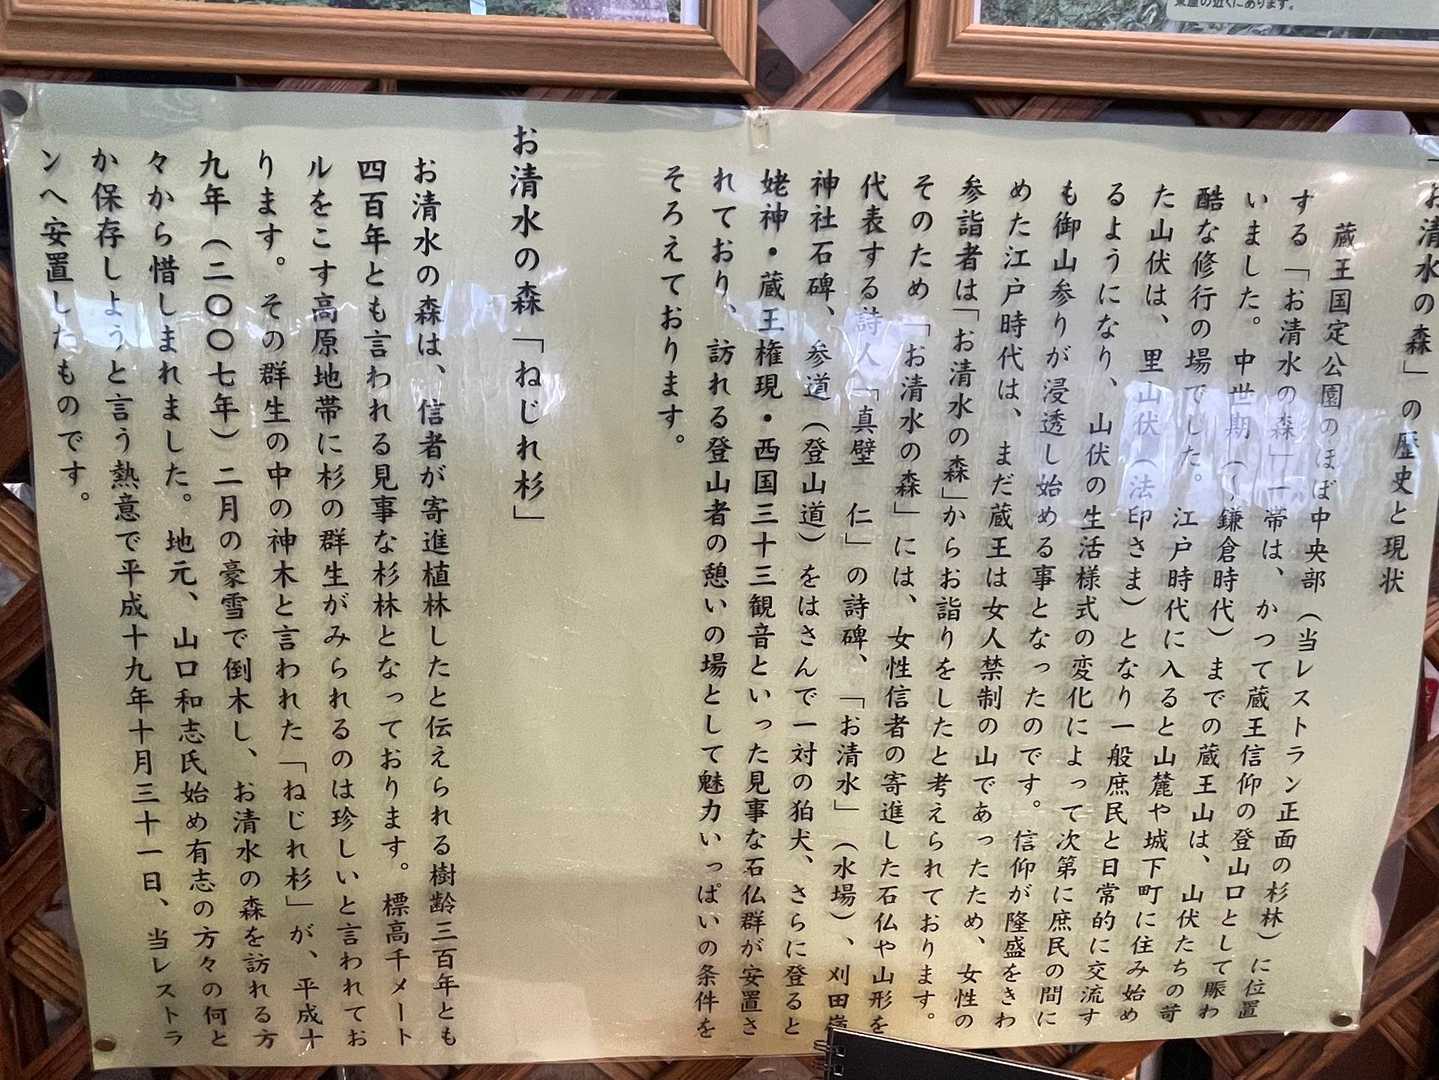 東屋の近くにあります。
「お清水の森」の歴史と現状
蔵王国定公園のほぼ中央部（当レストラン正面の杉林）に位置
する「お清水の森」一帯は、かつて蔵王信仰の登山口として賑わ
いました。中世期（～鎌倉時代）までの蔵王山は、山伏たちの苛
酷な修行の場でした。江戸時代に入ると山麓や城下町に住み始め
た山伏は、里山伏（法印さま）となり一般庶民と日常的に交流す
るようになり、山伏の生活様式の変化によって次第に庶民の間に
も御山参りが浸透し始める事となったのです。信仰が隆盛をきわ
めた江戸時代は、まだ蔵王は女人禁制の山であったため、女性の
参詣者は「お清水の森」からお詣りをしたと考えられております。
そのため「お清水の森」には、女性信者の寄進した石仏や山形を
代表する詩人「真壁　仁」の詩碑、「お清水」（水場）、刈田嶺
神社石碑、参道（登山道）をはさんで一対の狛犬、さらに登ると
姥神・蔵王権現・西国三十三観音といった見事な石仏群が安置さ
れており、訪れる登山者の憩いの場として魅力いっぱいの条件を
そろえております。
お清水の森「ねじれ杉」
お清水の森は、信者が寄進植林したと伝えられる樹齢三百年とも
四百年とも言われる見事な杉林となっております。標高千メート
ルをこす高原地帯に杉の群生がみられるのは珍しいと言われてお
ります。その群生の中の神木と言われた「ねじれ杉」が、平成十
九年（二〇〇七年）二月の豪雪で倒木し、お清水の森を訪れる方
々から惜しまれました。地元、山口和志氏始め有志の方々の何と
か保存しようと言う熱意で平成十九年十月三十一日、当レストラ
ンへ安置したものです。